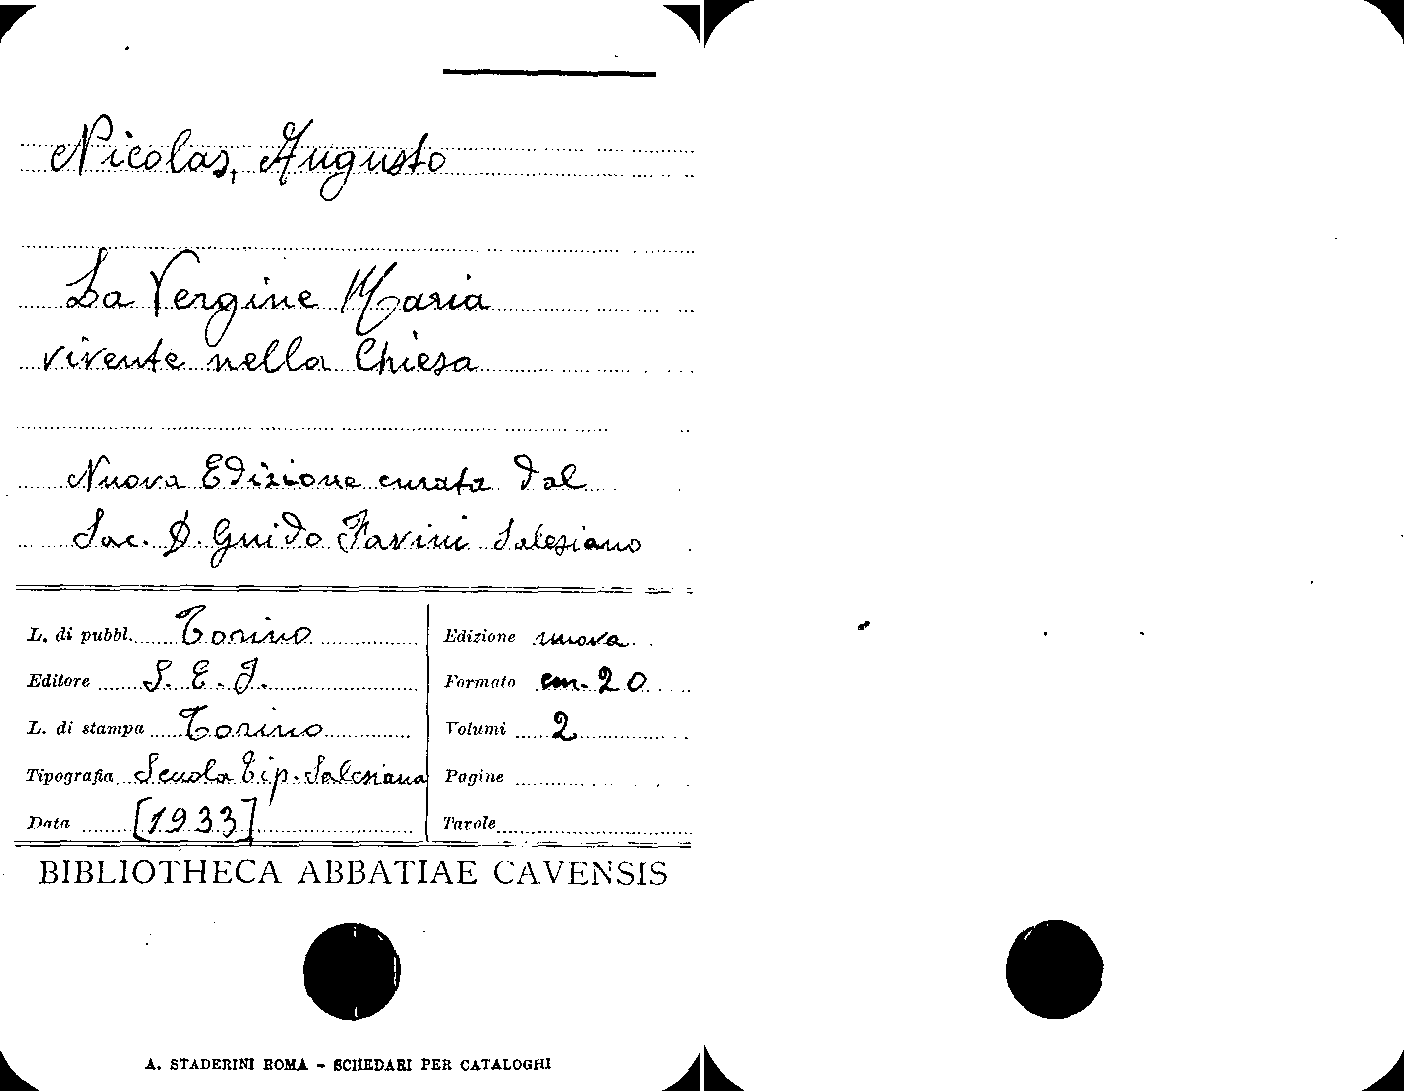 Nicolas, Augusto
La Vergine Maria
vivente nella Chiesa
Nuova Edizione curata dal
Sac. D. Guido Favini Salesiano
L. di pubbl. Torino
Editore S. E. I.
L. di stampa Torino
Tipografia Scuola Tip. Salesiana
Data [1933]
Edizione nuova
Formato cm. 20
Volumi 2
Pagine
Tavole
BIBLIOTHECA ABBATIAE CAVENSIS
A. STADERINI ROMA - SCHEDARI PER CATALOGHI